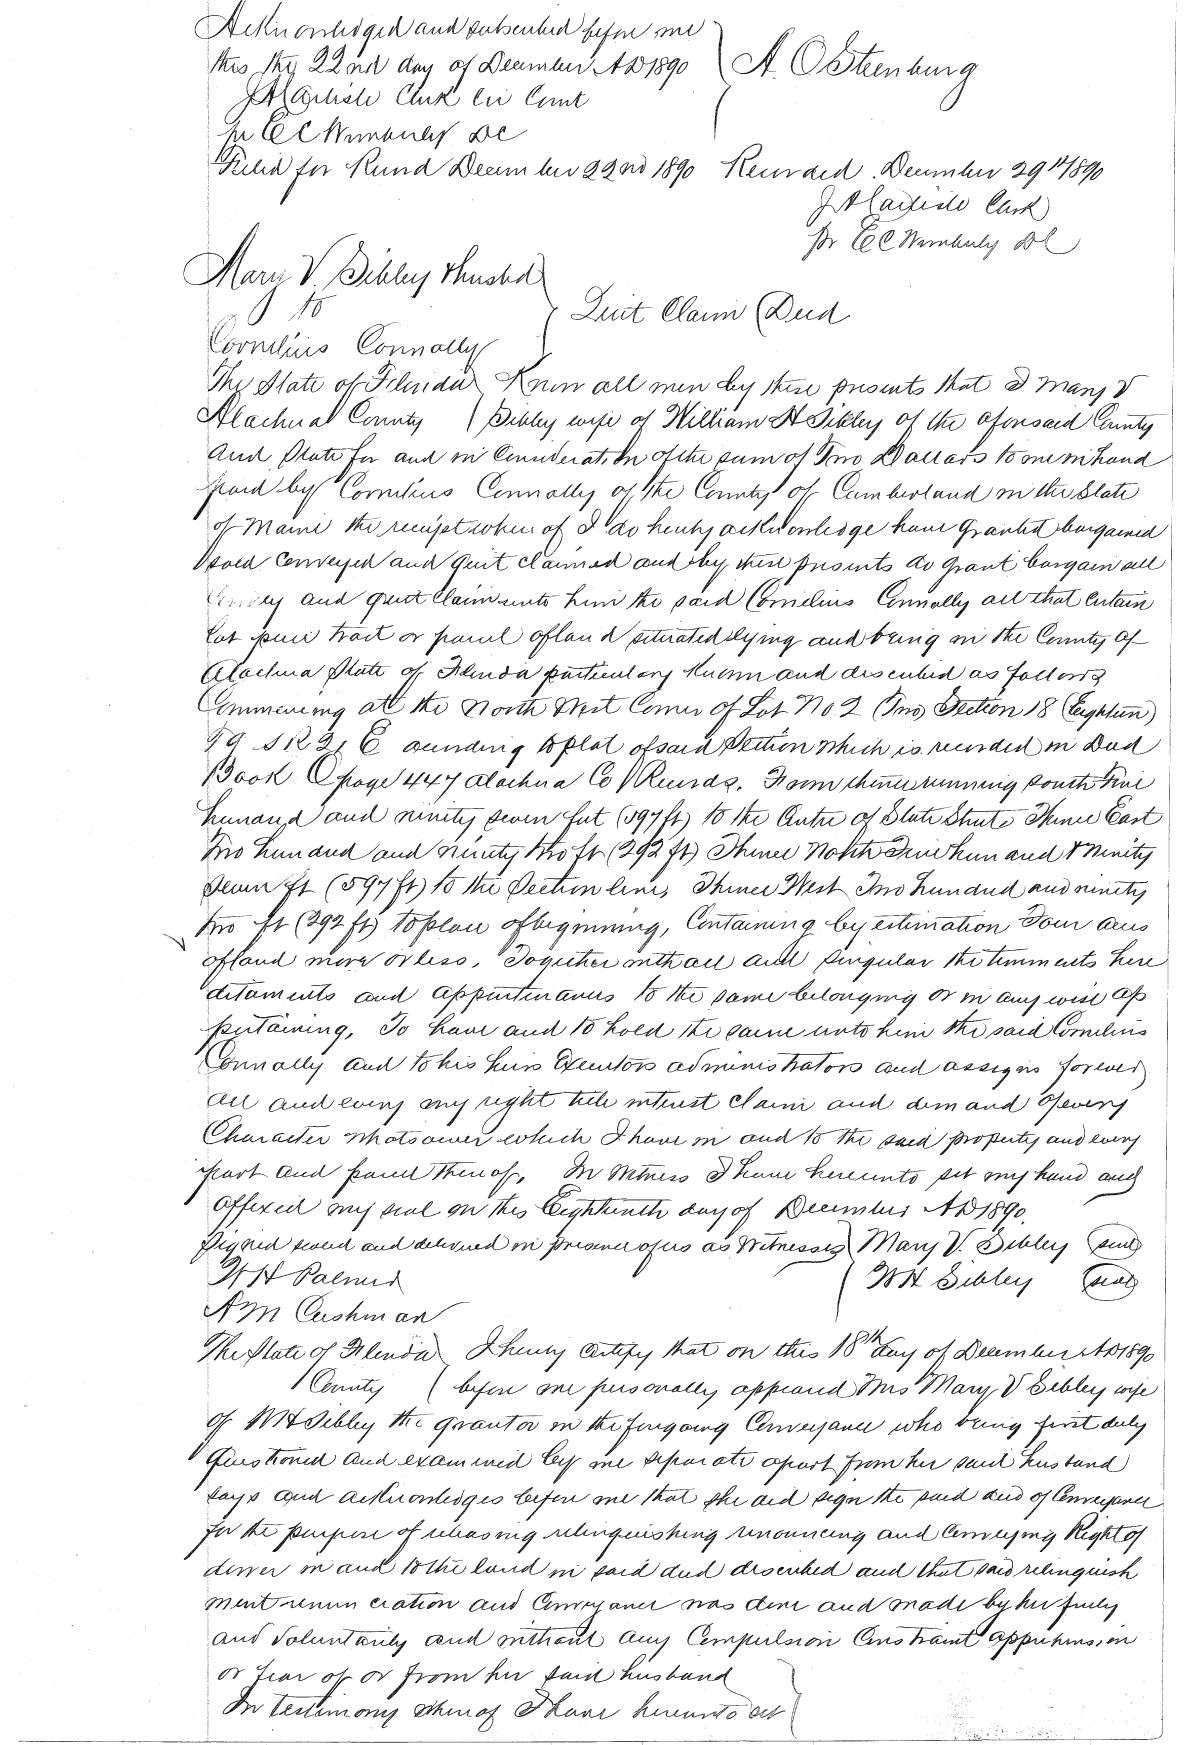 Acknowledged and subscribed before me
this the 22nd day of December AD 1890 A. O Steenburg
J A Carlisle Clerk Cir Court
pr E C Wimberly DC
Filed for Record December 22nd 1890 Recorded December 29th 1890
J A Carlisle Clerk
pr E C Wimberly DC
Mary V. Sibley & husbd
to
Quit Claim Deed
Cornelius Connolly
The State of Florida Know all men by these presents that I Mary V
Alachua County Sibley wife of William H Sibley of the aforesaid County
and State for and in Consideration of the sum of Two Dollars to me in hand
paid by Cornelius Connolly of the County of Cumberland in the State
of Maine the receipt where of I do hereby acknowledge have granted bargained
sold Conveyed and quit claimed and by these presents do grant bargain sell
Convey and quit Claim unto him the said Cornelius Connolly all that certain
Lot piece tract or parcel of land situated lying and being in the County of
Alachua State of Florida particulary known and described as follows
Commencing at the North West Corner of Lot No 2 (Two) Section 18 (Eighteen)
T 9 S R 21 E according to plat of said Section which is recorded in Deed
Book O page 447 Alachua Co Records. From thence running south Five
hundred and ninety seven feet (597 ft) to the Centre of State Street Thence East
Two hundred and ninety two ft (292 ft) Thence North Five hundred & Ninety
Seven ft (597 ft) to the Section line, Thence West Two hundred and ninety
two ft (292 ft) to place of beginning, Containing by estimation Four acres
of land more or less. Together with all and singular the tenements here
ditaments and appurtenances to the same belonging or in any wise ap
pertaining, To have and to hold the same unto him the said Cornelius
Connolly and to his heirs Executors administrators and assigns forever
all and every my right title interest claim and demand of every
Character whatsoever which I have in and to the said property and every
part and parcel thereof, In Witness I have hereunto set my hand and
affixed my seal on this Eighteenth day of December AD 1890.
Signed sealed and delivered in presence of us as Witnesses Mary V. Sibley (seal)
H H Palmer W H Sibley (seal)
A M Cushman
The State of Florida I hereby certify that on this 18th day of December AD 1890
County before me personally appeared Mrs Mary V Sibley wife
of W H Sibley the grantor in the foregoing Conveyance who being first duly
questioned and examined by me separate apart from her said husband
says and acknowledges before me that she did sign the said deed of Conveyance
for the purpose of releasing relinquishing renouncing and Conveying Right of
dower in and to the land in said deed described and that said relinquish
ment renun ciation and Conveyance was done and made by her freely
and voluntarily and without any Compulsion Constraint apprehension
or fear of or from her said husband
In testimony whereof I have hereunto set